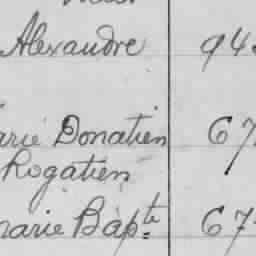 Alexandre 94
arie Donatien 67
Rogatien
marie Bapte 67